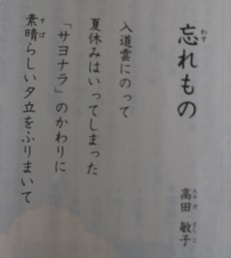 忘れもの
高田 敏子
入道雲にのって
夏休みはいってしまった
「サヨナラ」のかわりに
素晴らしい夕立をふりまいて